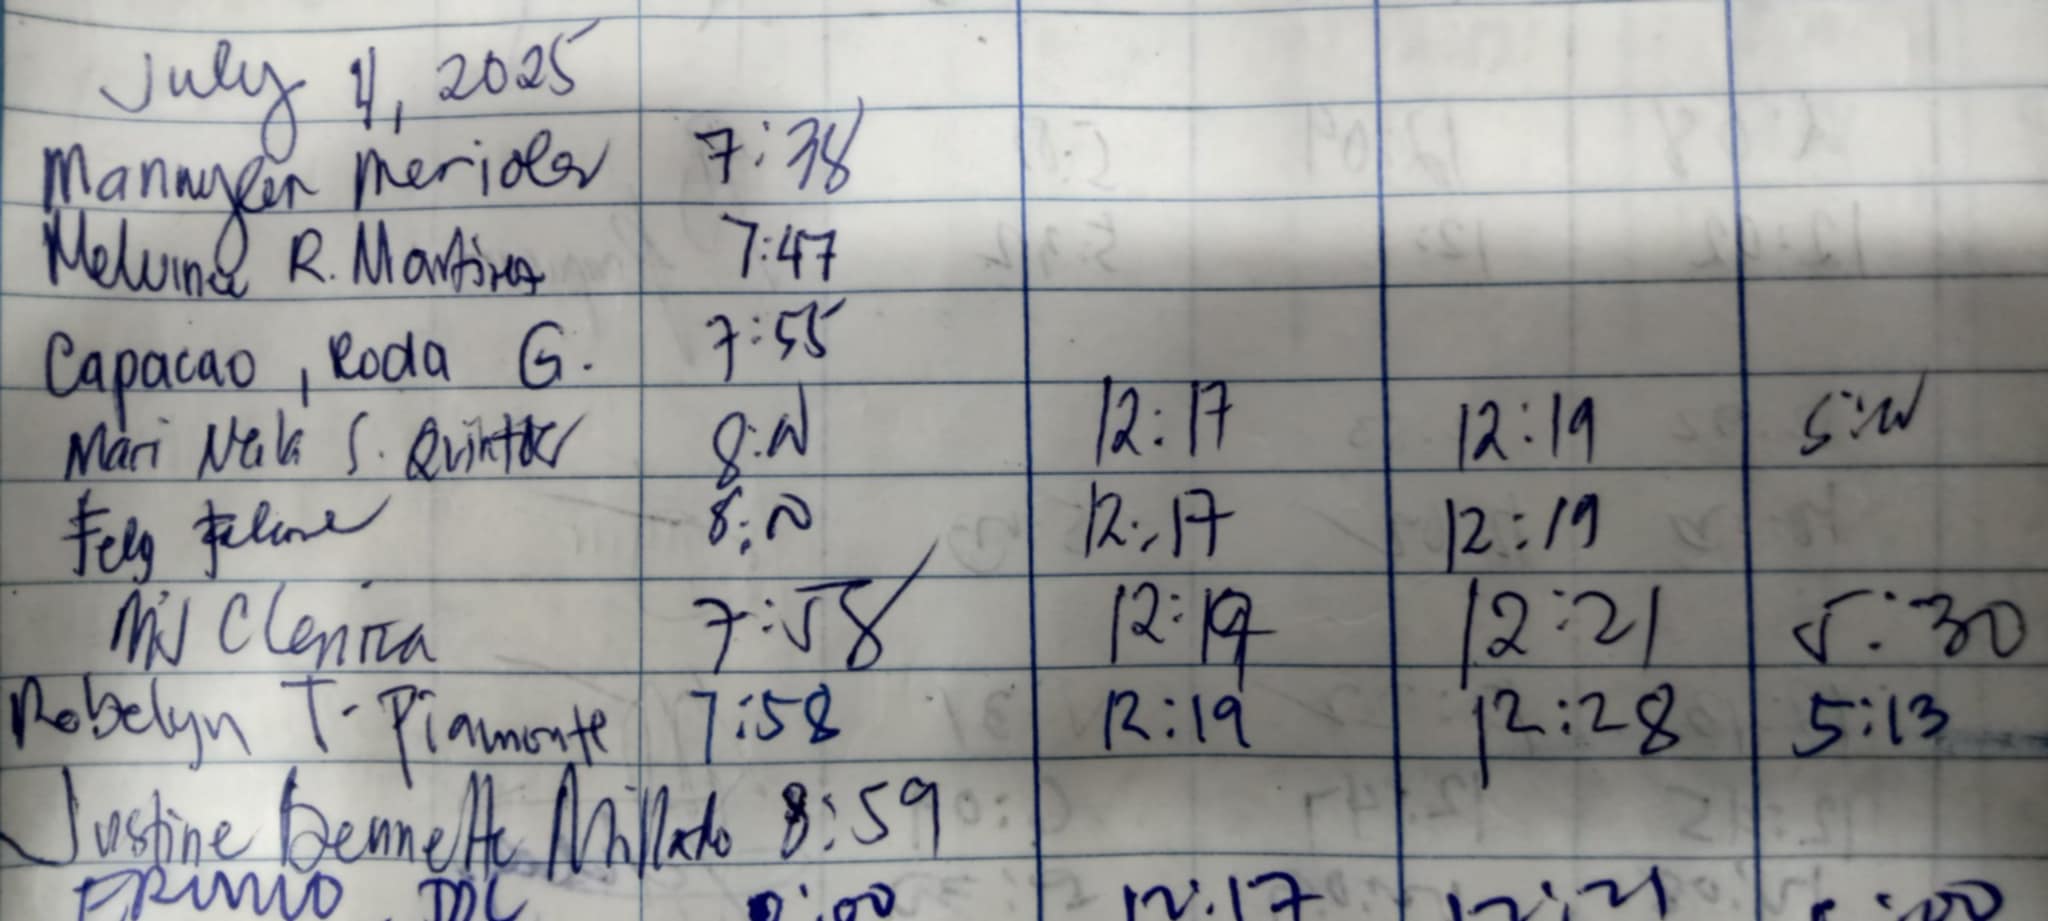 July 4, 2025
Mannylen Meriales 7:38
Melvina R. Martinez 7:47
Capacao, Roda G. 7:55
Mari S. 12:17 12:19
12:17 12:19
MJ Clenica 7:58 12:19 12:21 5:30
Robelyn T. Piamonte 7:58 12:19 12:28 5:13
Justine Bennette Millado 8:59
12:17 12:21